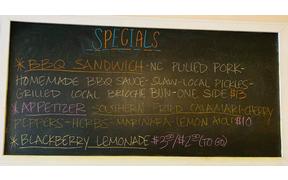 SPECIALS
*BBQ SANDWICH-NC PULLED PORK-
HOMEMADE BBQ SAUCE-SLAW-LOCAL PICKLES-
GRILLED LOCAL BRIOCHE BUN-ONE SIDE $13
*APPETIZER SOUTHERN FRIED CALAMARI-CHERRY
PEPPERS-HERBS-MARINARA-LEMON AIOLI $10
*BLACKBERRY LEMONADE $3.50/$2.50 (TO GO)